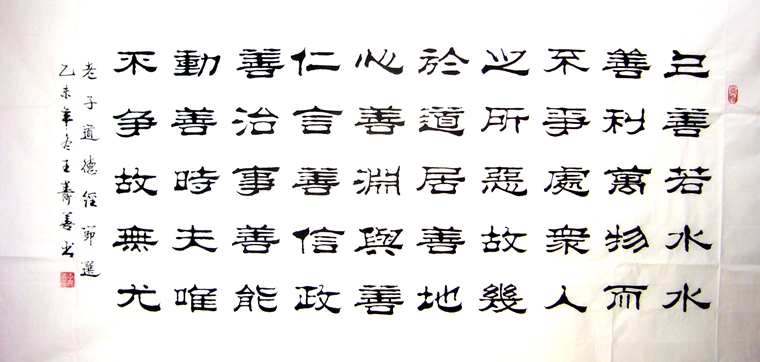 上善若水水
善利萬物而
不爭處衆人
之所惡故幾
於道居善地
心善淵與善
仁言善信政
善治事善能
動善時夫唯
不争故無尤
老子道德經節選
乙未年冬王壽善书